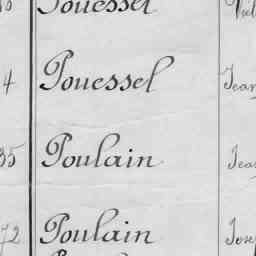 Pouessel
4 Pouessel Jean
35 Poulain Jean
72 Poulain Jose